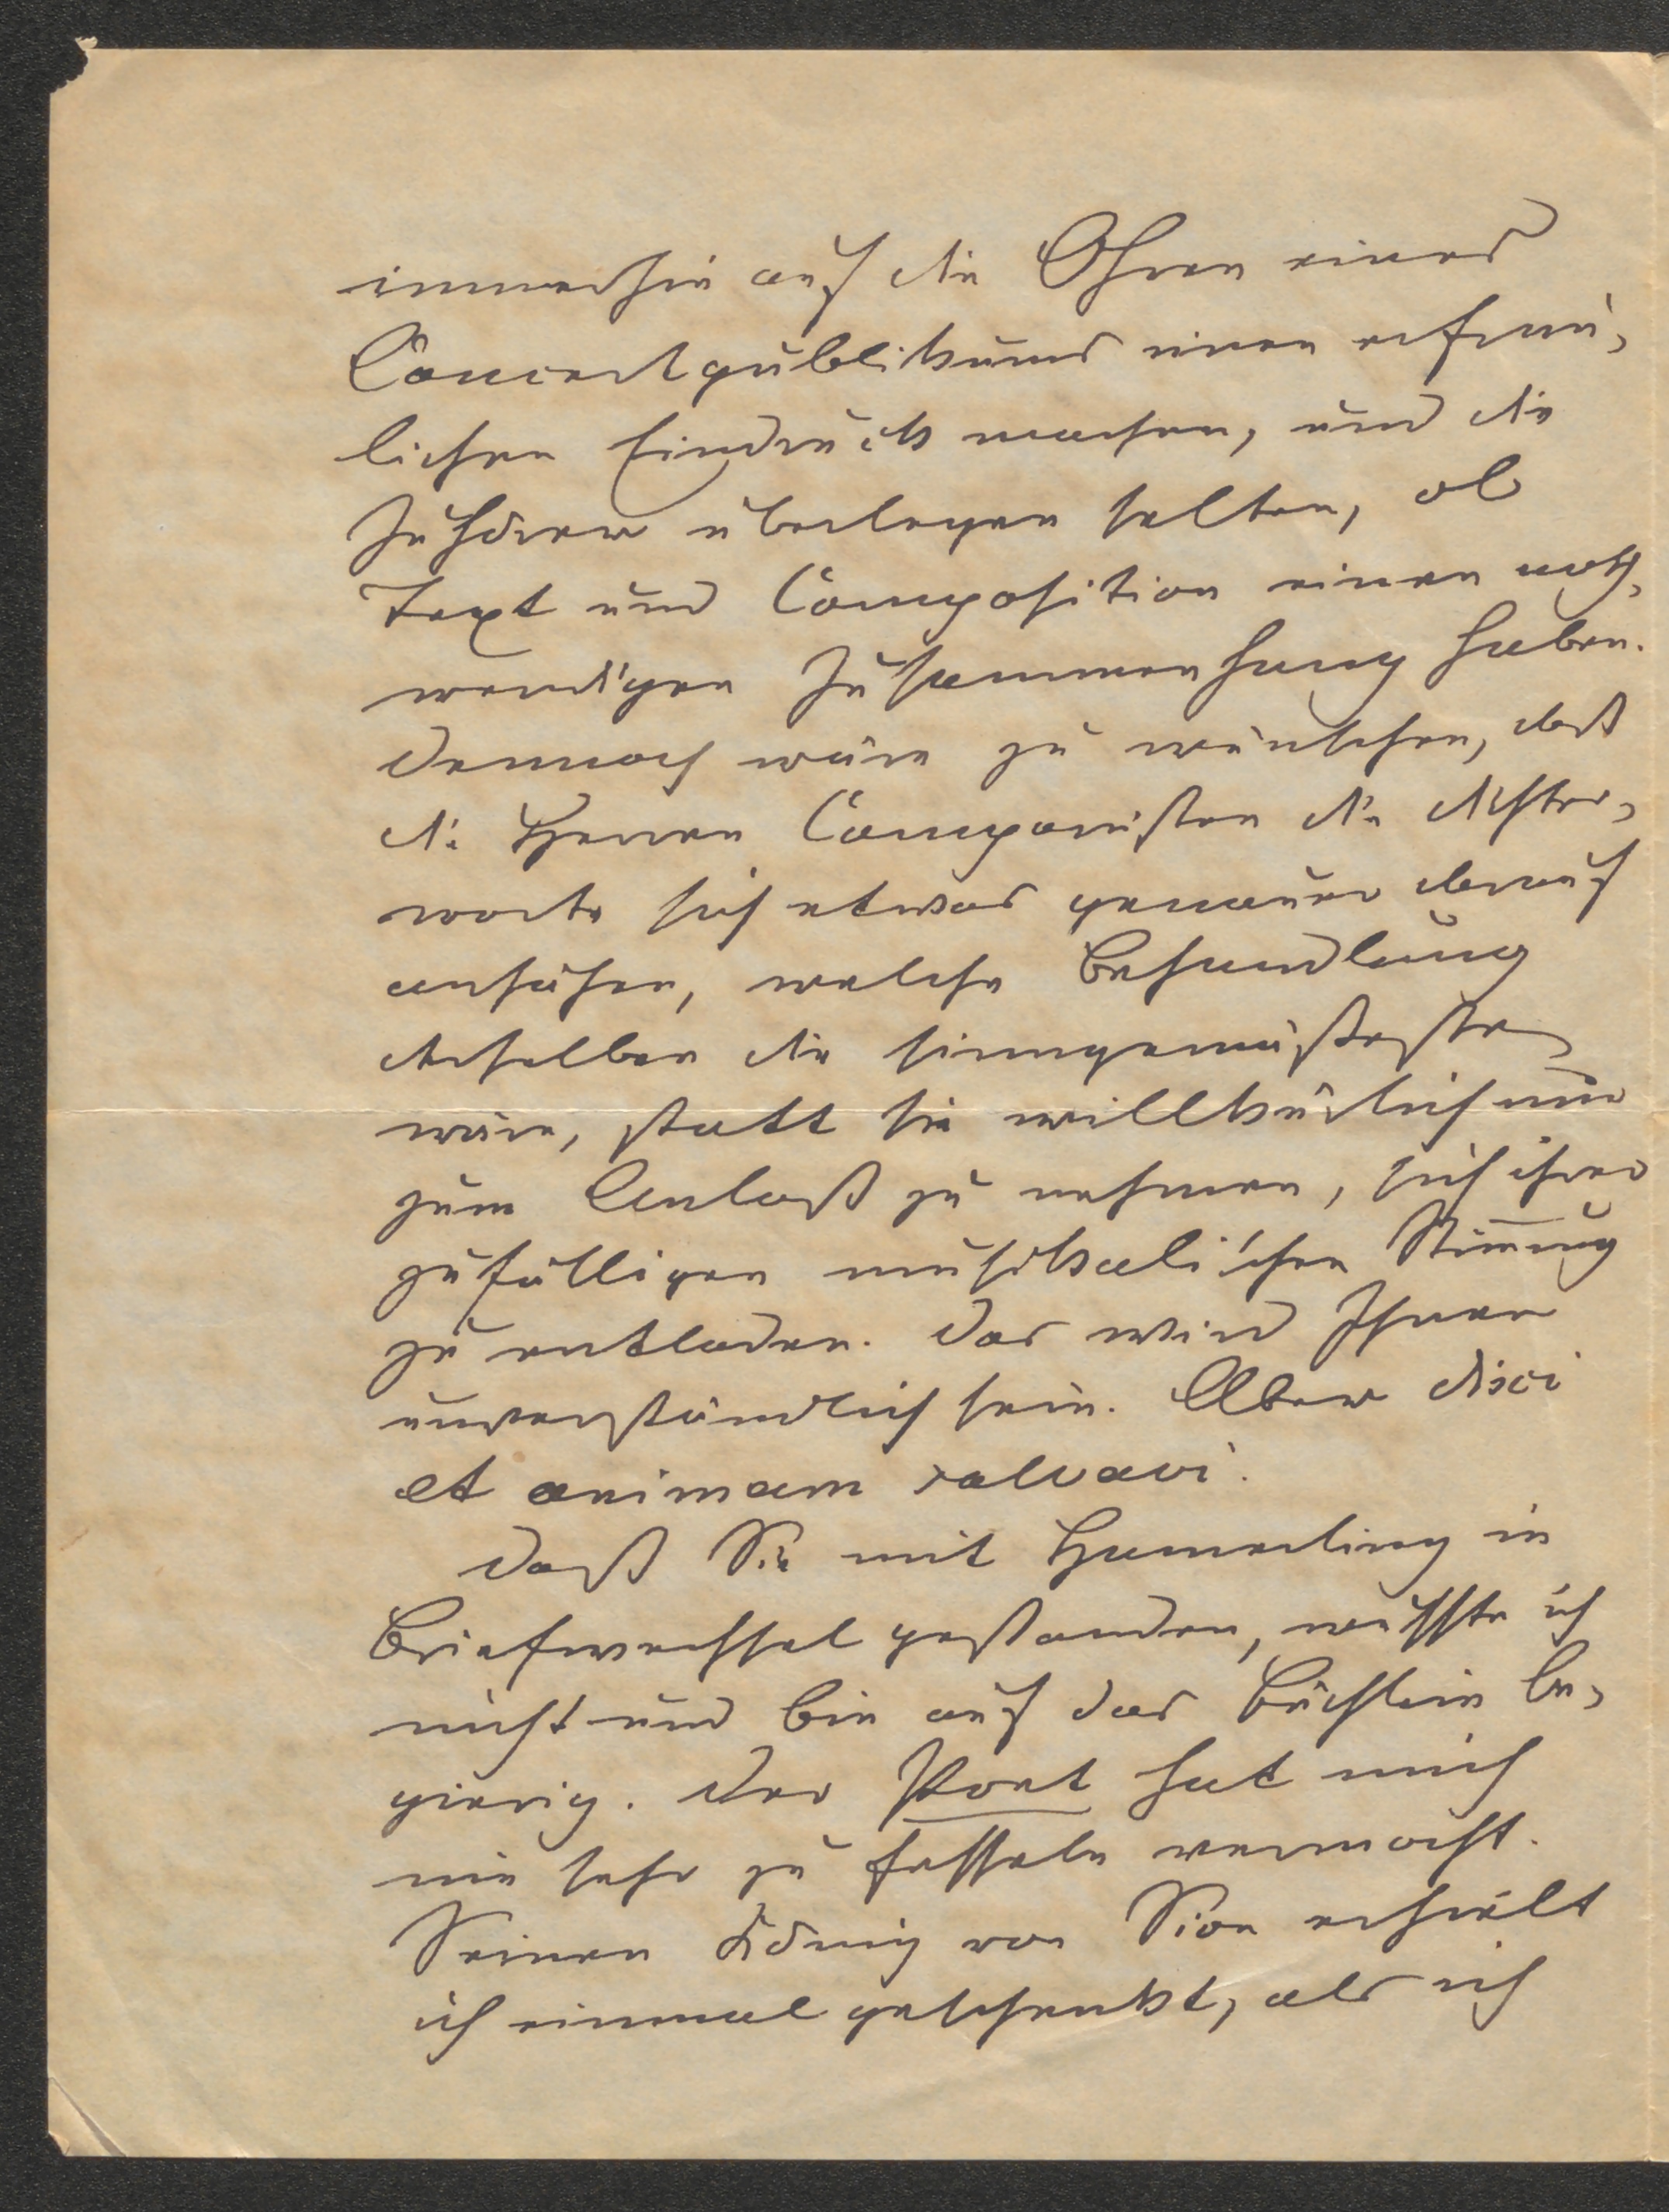 immerhin auf die Ohren eines
Concertpublikums einen erfreu-
lichen Eindruck machen, und die
Zuhörer überlegen selten, ob
Text und Composition einen noth-
wendigen Zusammenhang haben.
Dennoch wäre zu wünschen, daß
die Herren Componisten die Dichter-
worte sich etwas genauer darauf
ansähen, welche Behandlung
derselben die sinngemäßeste
wäre, statt sie willkürlich nur
zum Anlaß zu nehmen, sich ihrer
zufälligen musikalischen Stim̅ung
zu entladen. Das wird Ihnen
unverständlich sein. Aber dixi
et animam salvavi.
Daß Sie mit Hamerling in
Briefwechsel gestanden, wusste ich
nicht und bin auf das Büchlein be-
gierig. Der Poet hat mich
nie sehr zu fesseln vermocht.
Seinen König von Sion erhielt
ich einmal geschenkt, als ich